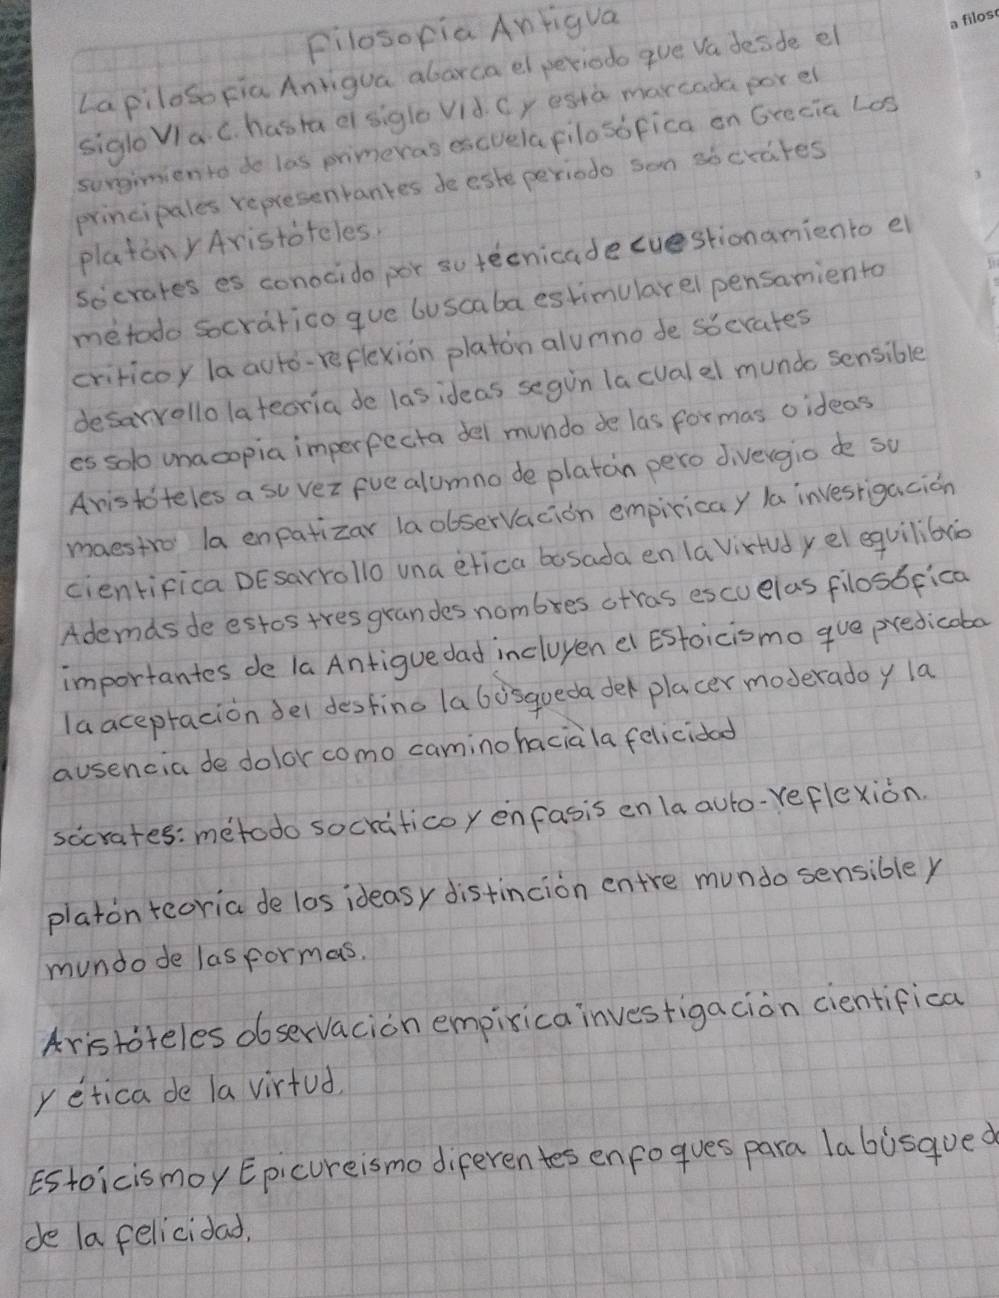 a filoso
Filosofia Antigua
La filosofia Antigua abarca el periodo que va desde el
siglo VI a.C. hasta el siglo VI d.C y está marcada por el
surgimiento de las primeras escuela filosófica en Grecia Los
principales representantes de este periodo son sócrates
platón y Aristóteles.
sócrates es conocido por su técnica de cuestionamiento el
método socrático que buscaba estimular el pensamiento
critico y la autó-reflexión platón alumno de sócrates
desarrollo la teoría de las ideas según la cual el mundo sensible
es solo una copia imperfecta del mundo de las formas o ideas
Aristóteles a su vez fue alumno de platón pero divergio de su
maestro la enfatizar la observación empirica y la investigación
cientifica DEsarrollo una ética basada en la virtud y el equilibrio
Ademas de estos tres grandes nombres otras escuelas filosófica
importantes de la Antiguedad incluyen el Estoicismo que predicaba
la aceptación del destino la búsqueda del placer moderado y la
ausencia de dolor como camino hacia la felicidad
sócrates: método socrático y énfasis en la auto-reflexión.
platón teoria de las ideas y distinción entre mundo sensible y
mundo de las formas.
Aristóteles observación empirica investigación cientifica
y ética de la virtud.
Estoicismo y Epicureismo diferentes enfoques para la búsqued
de la felicidad.